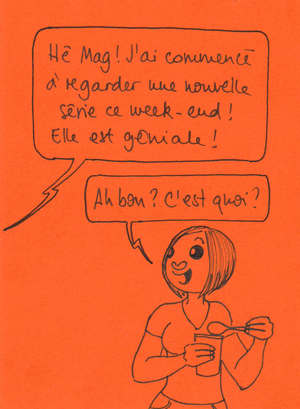 Hé Mag! J'ai commencé
à regarder une nouvelle
série ce week-end!
Elle est géniale!
Ah bon? C'est quoi?